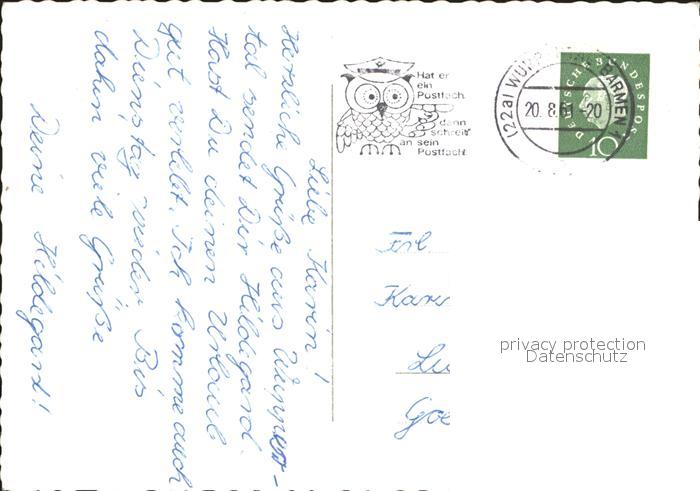 Liebe Karin!
Herzliche Grüße aus Wupper-
tal sendet Dir Hildegard.
Hast Du deinen Urlaub
gut verlebt. Ich komme auch
Dienstag wieder. Bis
dahin viele Grüße
Deine Hildegard!
Hat er
ein
Postfach,
dann
schreib'
an sein
Postfach!
(22a) WUPP BARMEN 1
20.8.61-20
DEUTSCHE BUNDESPOST
10
Frl.
privacy protection
Datenschutz